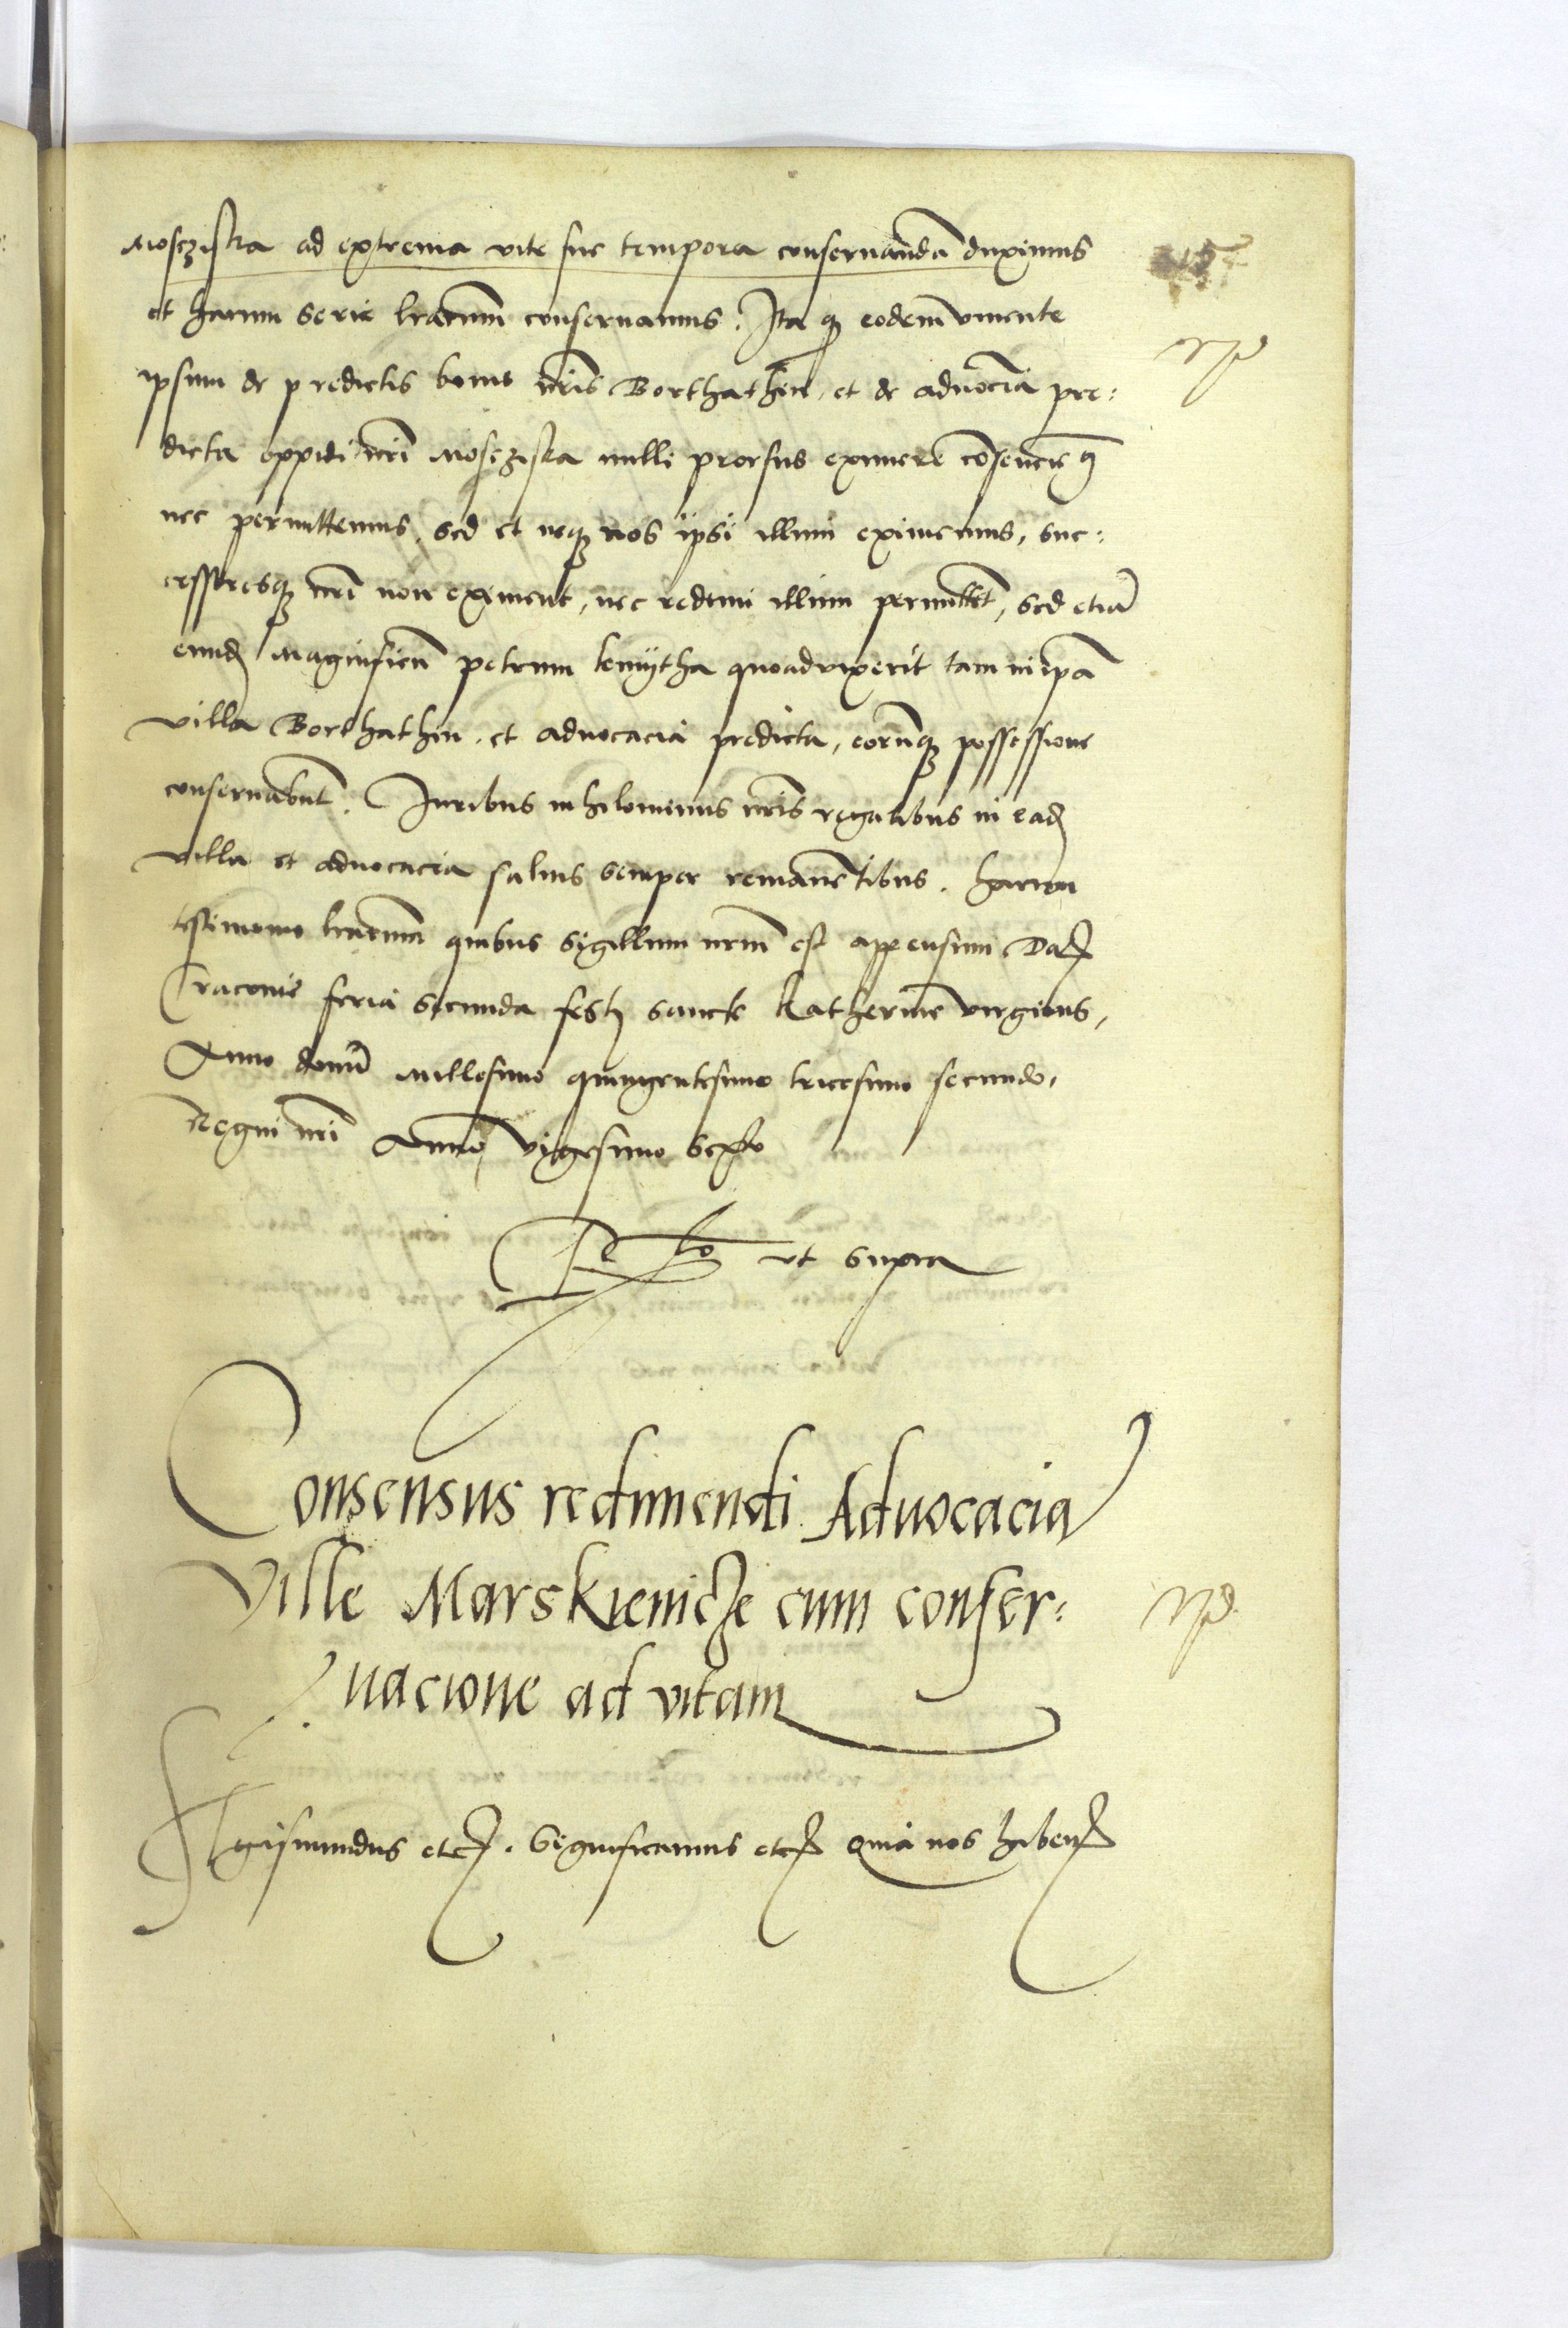 Moscziska ad extrema vite sue tempora conservandũ duximus
et harum serie lrarum conservamus. Ita q eodem vivente
ipsum de predictis bonis nris Borthathin, et de advocia pre:
dicta oppidi nri Moscziska nulli prorsus eximere cõsencie
nec permittemus, sed et neq nos ipsi illum eximemus, suc:
cessoresq nri non eximent, nec redimi illum permittẽt, sed etiã
eund Magnificũ petrum kmytha quoadvixerit tam in ipa
villa Borthathin, et advocacia predicta, eorũq possessione
conservabũt. Juribus nihilominus nris regalibus in ead
villa et advocacia salvis semper remanẽtibus. harum
testimonio lrarum quibus sigillum nrm est appensum Dat
Cracovie feria secunda festi sancte Katherine virginis,
Anno domi millesimo quingentesimo tricesimo secundo,
Regni nri Anno vigesimo sexto
ut supra
Consensus redimendi Advocacia
Ville Marskienicze cum conser:
vacione ad vitam
Sigismundus etc. Significamus etc Quia nos haben